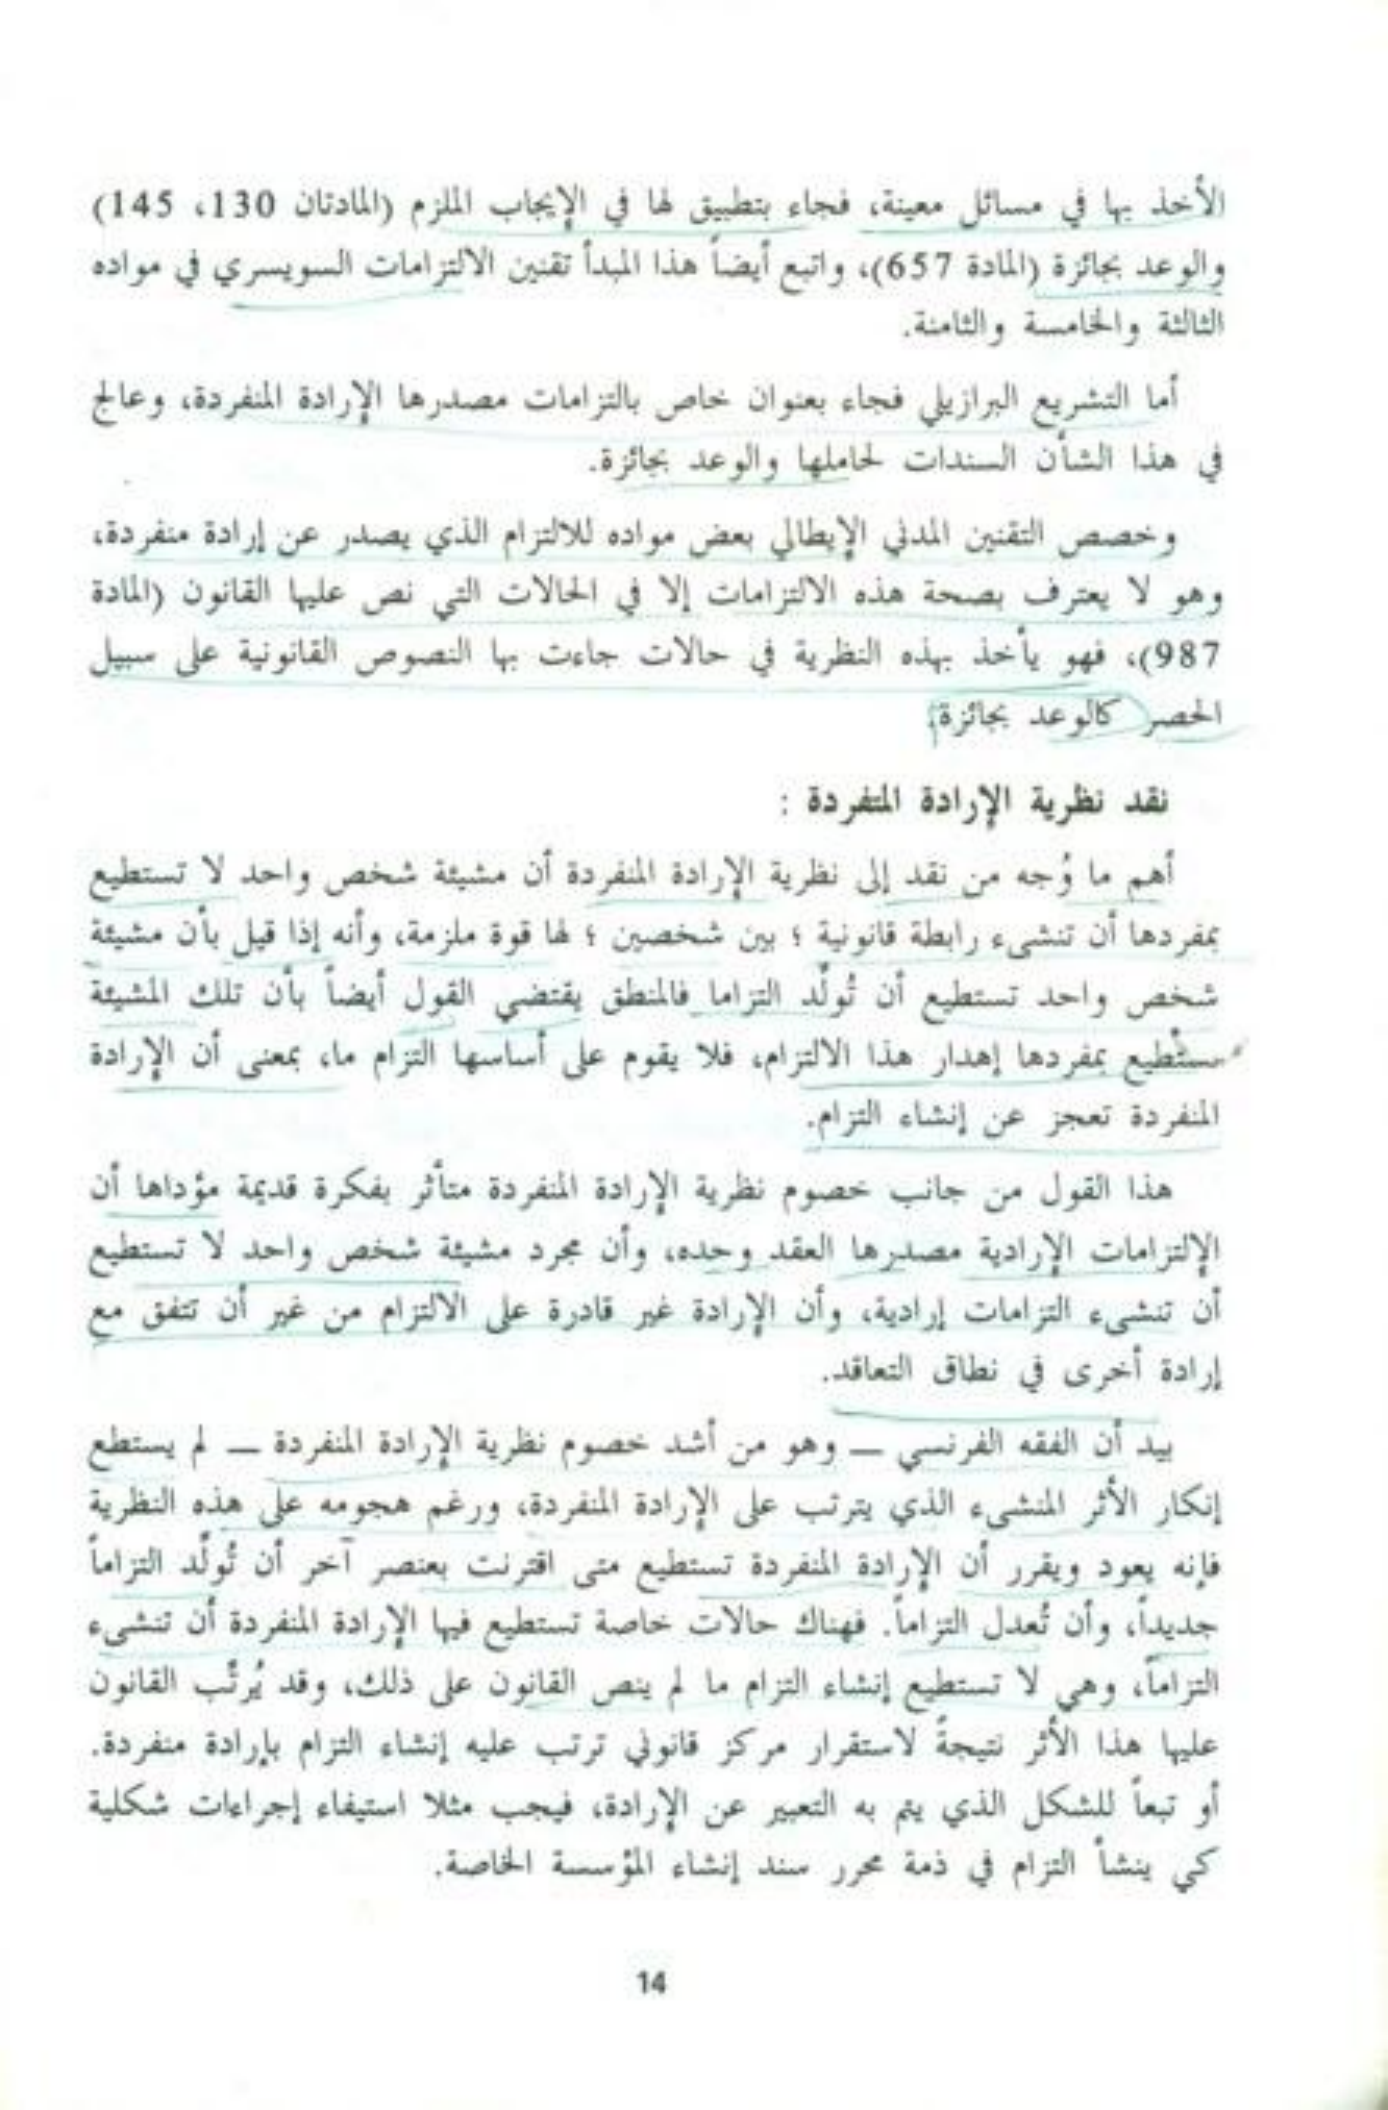 الأخذ بها في مسائل معينة، فجاء بتطبيق لها في الإيجاب الملزم (المادتان 130، 145)
والوعد بجائزة (المادة 657)، واتبع أيضاً هذا المبدأ تقنين الالتزامات السويسري في مواده
الثالثة والخامسة والثامنة.
أما التشريع البرازيلي فجاء بعنوان خاص بالتزامات مصدرها الإرادة المنفردة، وعالج
في هذا الشأن السندات لحاملها والوعد بجائزة.
وخصص التقنين المدني الإيطالي بعض مواده للالتزام الذي يصدر عن إرادة منفردة،
وهو لا يعترف بصحة هذه الالتزامات إلا في الحالات التي نص عليها القانون (المادة
987)، فهو يأخذ بهذه النظرية في حالات جاءت بها النصوص القانونية على سبيل
الحصر كالوعد بجائزة.
نقد نظرية الإرادة المتفردة :
أهم ما وُجه من نقد إلى نظرية الإرادة المنفردة أن مشيئة شخص واحد لا تستطيع
بمفردها أن تنشىء رابطة قانونية ؛ بين شخصين ؛ لها قوة ملزمة، وأنه إذا قيل بأن مشيئة
شخص واحد تستطيع أن تُولّد التزاما فالمنطق يقتضي القول أيضاً بأن تلك المشيئة
ستطيع بمفردها إهدار هذا الالتزام، فلا يقوم على أساسها التزام ما، بمعنى أن الإرادة
المنفردة تعجز عن إنشاء التزام.
هذا القول من جانب خصوم نظرية الإرادة المنفردة متأثر بفكرة قديمة مؤداها أن
الإلتزامات الإرادية مصدرها العقد وحده، وأن مجرد مشيئة شخص واحد لا تستطيع
أن تنشىء التزامات إرادية، وأن الإرادة غير قادرة على الالتزام من غير أن تتفق مع
إرادة أخرى في نطاق التعاقد.
بيد أن الفقه الفرنسي ــ وهو من أشد خصوم نظرية الإرادة المنفردة ــ لم يستطع
إنكار الأثر المنشىء الذي يترتب على الإرادة المنفردة، ورغم هجومه على هذه النظرية
فإنه يعود ويقرر أن الإرادة المنفردة تستطيع متى اقترنت بعنصر آخر أن تُولّد التزاماً
جديداً، وأن تُعدل التزاماً. فهناك حالات خاصة تستطيع فيها الإرادة المنفردة أن تنشىء
التزاماً، وهي لا تستطيع إنشاء التزام ما لم ينص القانون على ذلك، وقد يُرتّب القانون
عليها هذا الأثر نتيجةً لاستقرار مركز قانوني ترتب عليه إنشاء التزام بإرادة منفردة.
أو تبعاً للشكل الذي يتم به التعبير عن الإرادة، فيجب مثلا استيفاء إجراءات شكلية
كي ينشأ التزام في ذمة محرر سند إنشاء المؤسسة الخاصة.
14